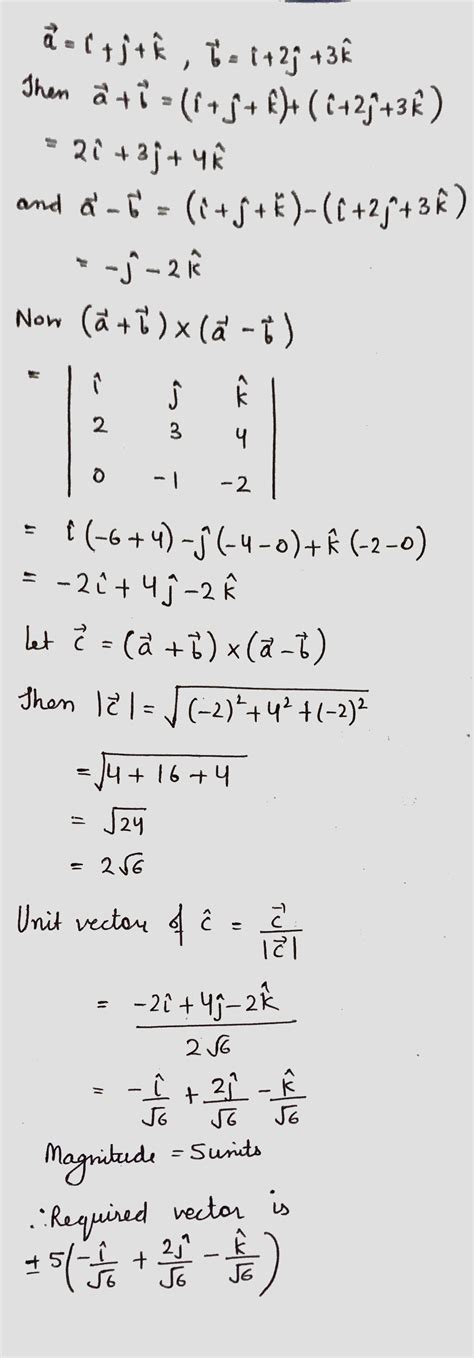 a⃗ = î + ĵ + k̂ , b⃗ = î + 2ĵ + 3k̂
Then a⃗ + b⃗ = (î + ĵ + k̂) + (î + 2ĵ + 3k̂)
= 2î + 3ĵ + 4k̂
and a⃗ - b⃗ = (î + ĵ + k̂) - (î + 2ĵ + 3k̂)
= -ĵ - 2k̂
Now (a⃗ + b⃗) × (a⃗ - b⃗)
= | î ĵ k̂ |
| 2 3 4 |
| 0 -1 -2 |
= î (-6+4) - ĵ (-4-0) + k̂ (-2-0)
= -2î + 4ĵ - 2k̂
Let c⃗ = (a⃗ + b⃗) × (a⃗ - b⃗)
Then |c⃗| = √((-2)² + 4² + (-2)²)
= √(4 + 16 + 4)
= √24
= 2√6
Unit vector of ĉ = c⃗/|c⃗|
= (-2î + 4ĵ - 2k̂)/(2√6)
= -î/√6 + 2ĵ/√6 - k̂/√6
Magnitude = 5 units
∴ Required vector is
± 5(-î/√6 + 2ĵ/√6 - k̂/√6)